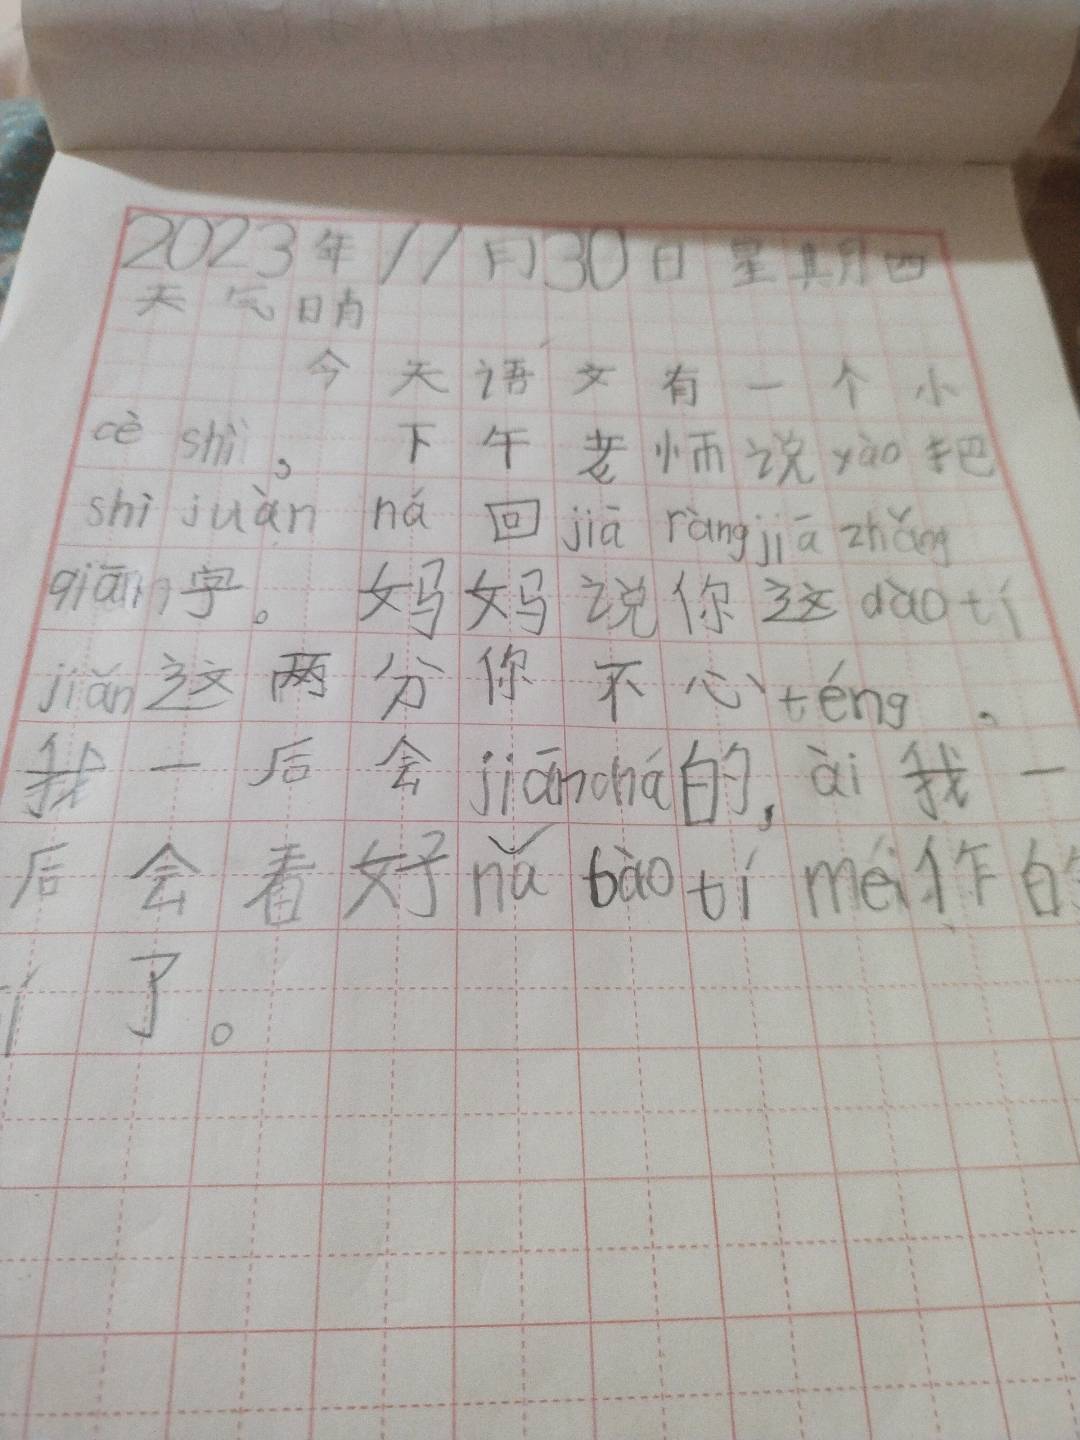 2023年11月30日星期四
天气晴
今天语文有一个小
cè shì，下午老师说yào把
shì juàn ná回jiā ràng jiā zhǎng
qiān字。妈妈说你这dào tí
jiǎn这两分你不心téng。
我一后会jiān chá的，ài我一
后会看好nǎ bào tí méi作的
了。